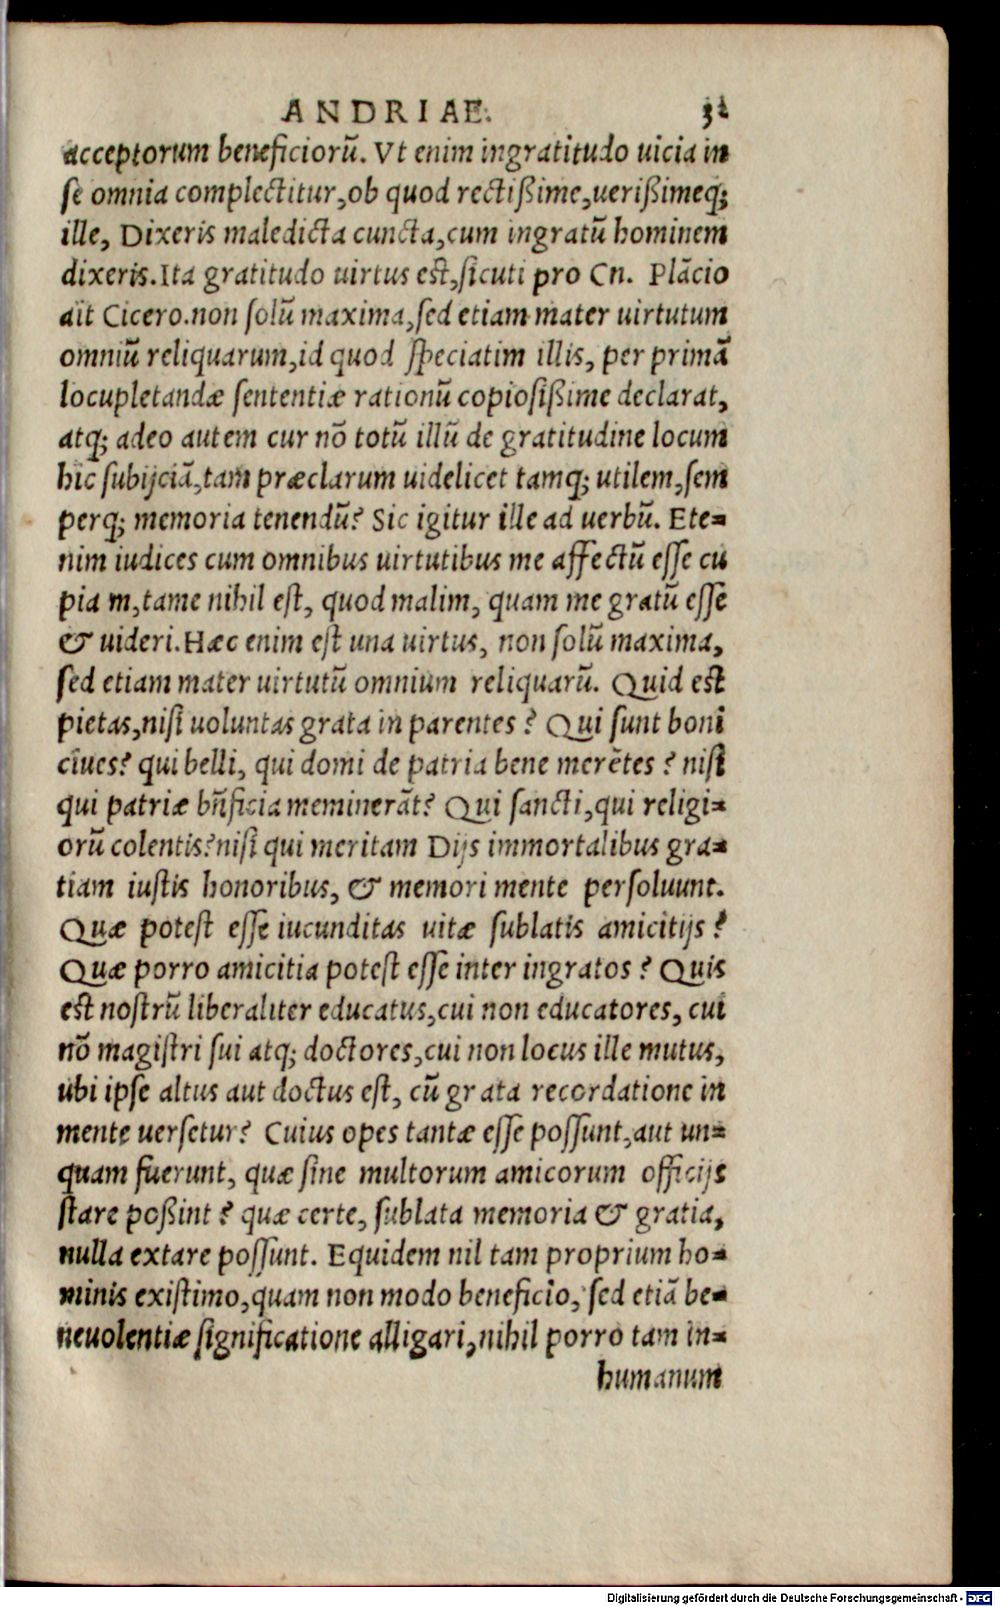 ANDRIAE. 32
acceptorum beneficiorũ. Vt enim ingratitudo uicia in
ſe omnia complectitur, ob quod rectißime, uerißimeq;
ille, Dixeris maledicta cuncta, cum ingratũ hominem
dixeris. Ita gratitudo uirtus est, ſicuti pro Cn. Plãcio
ait Cicero. non ſolũ maxima, ſed etiam mater uirtutum
omniũ reliquarum, id quod ſpeciatim illis, per primã
locupletandæ ſententiæ rationũ copioſißime declarat,
atq; adeo autem cur nõ totũ illũ de gratitudine locum
hic ſubijciã, tam præclarum uidelicet tamq; utilem, ſem
perq; memoria tenendũ? Sic igitur ille ad uerbũ. Ete=
nim iudices cum omnibus uirtutibus me affectũ eſſe cu
pia m, tame nihil eſt, quod malim, quam me gratũ eſſe
& uideri. Hæc enim eſt una uirtus, non ſolũ maxima,
ſed etiam mater uirtutũ omnium reliquarũ. Quid est
pietas, niſi uoluntas grata in parentes? Qui ſunt boni
ciues? qui belli, qui domi de patria bene merẽtes? niſi
qui patriæ bñficia meminerãt? Qui ſancti, qui religi=
orũ colentis? niſi qui meritam Dijs immortalibus gra=
tiam iuſtis honoribus, & memori mente perſoluunt.
Quæ poteſt eſſe iucunditas uitæ ſublatis amicitijs?
Quæ porro amicitia poteſt eſſe inter ingratos? Quis
est noſtrũ liberaliter educatus, cui non educatores, cui
nõ magiſtri ſui atq; doctores, cui non locus ille mutus,
ubi ipſe altus aut doctus eſt, cũ grata recordatione in
mente uerſetur? Cuius opes tantæ eſſe poſſunt, aut un=
quam fuerunt, quæ ſine multorum amicorum officijs
ſtare poßint? quæ certe, ſublata memoria & gratia,
nulla extare poſſunt. Equidem nil tam proprium ho=
minis exiſtimo, quam non modo beneficio, ſed etiã be=
neuolentiæ ſignificatione alligari, nihil porro tam in=
humanum
Digitalisierung gefördert durch die Deutsche Forschungsgemeinschaft - DFG